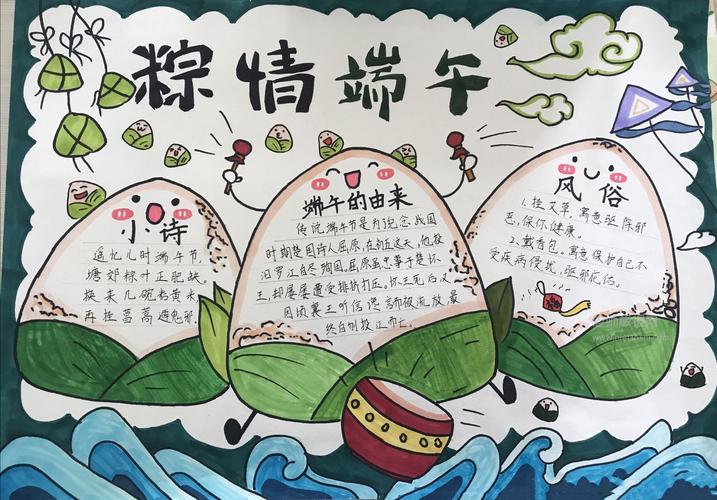 粽情端午
小诗
遥忆儿时端午节，
塘郊粽叶正肥缺。
换来几碗黄米，
再挂菖蒿避鬼邪。
端午的由来
传说端午节是为纪念战国
时期楚国诗人屈原，在初五这天，他投
汨罗江自尽殉国。屈原虽忠事于楚怀
王，却屡屡遭受排挤打压。怀王死后又
因顷襄王听信谗言而被流放，最
终自刎投江而亡。
风俗
1.挂艾草，寓意驱除邪
恶，保你健康。
2.戴香包，寓意保护自己不
受疾病侵扰，驱邪庇佑。